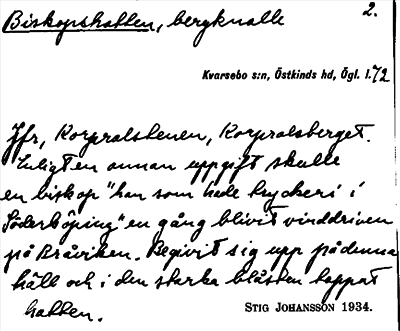 Biskopshatten, bergknalle 2.
Kvarsebo s:n, Östkinds hd, Ögl. l.72
Jfr, Korpralstenen, Korpralsberget.
Enligt en annan uppgift skulle
en biskop "han som hade tryckeri i
Söderköping" en gång blivit vinddriven
på Bråviken. Begivit sig upp på denna
häll och i den starka blåsten tappat
hatten.
STIG JOHANSSON 1934.